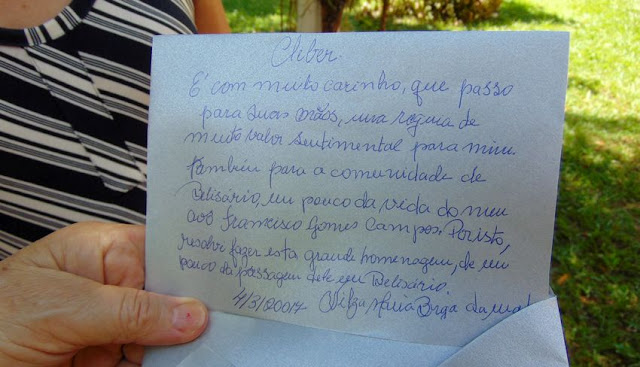 Cliber
É com muito carinho, que passo
para suas mãos, uma régua de
muito valor sentimental para mim.
também para a comunidade de
Belisário, um pouco da vida do meu
avô Francisco Gomes Campos,
resolvi fazer esta grande homenagem, de um
pouco da passagem dele em Belisário.
4/3/20017 Maria Braga da